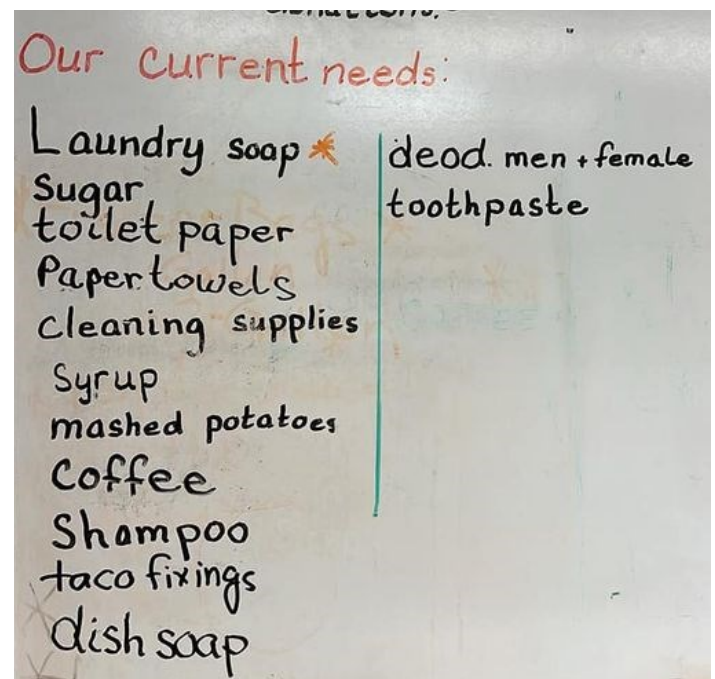 Our current needs:
Laundry soap *
Sugar
toilet paper
Paper towels
cleaning supplies
Syrup
mashed potatoes
Coffee
Shampoo
taco fixings
dish soap
deod. men + female
toothpaste